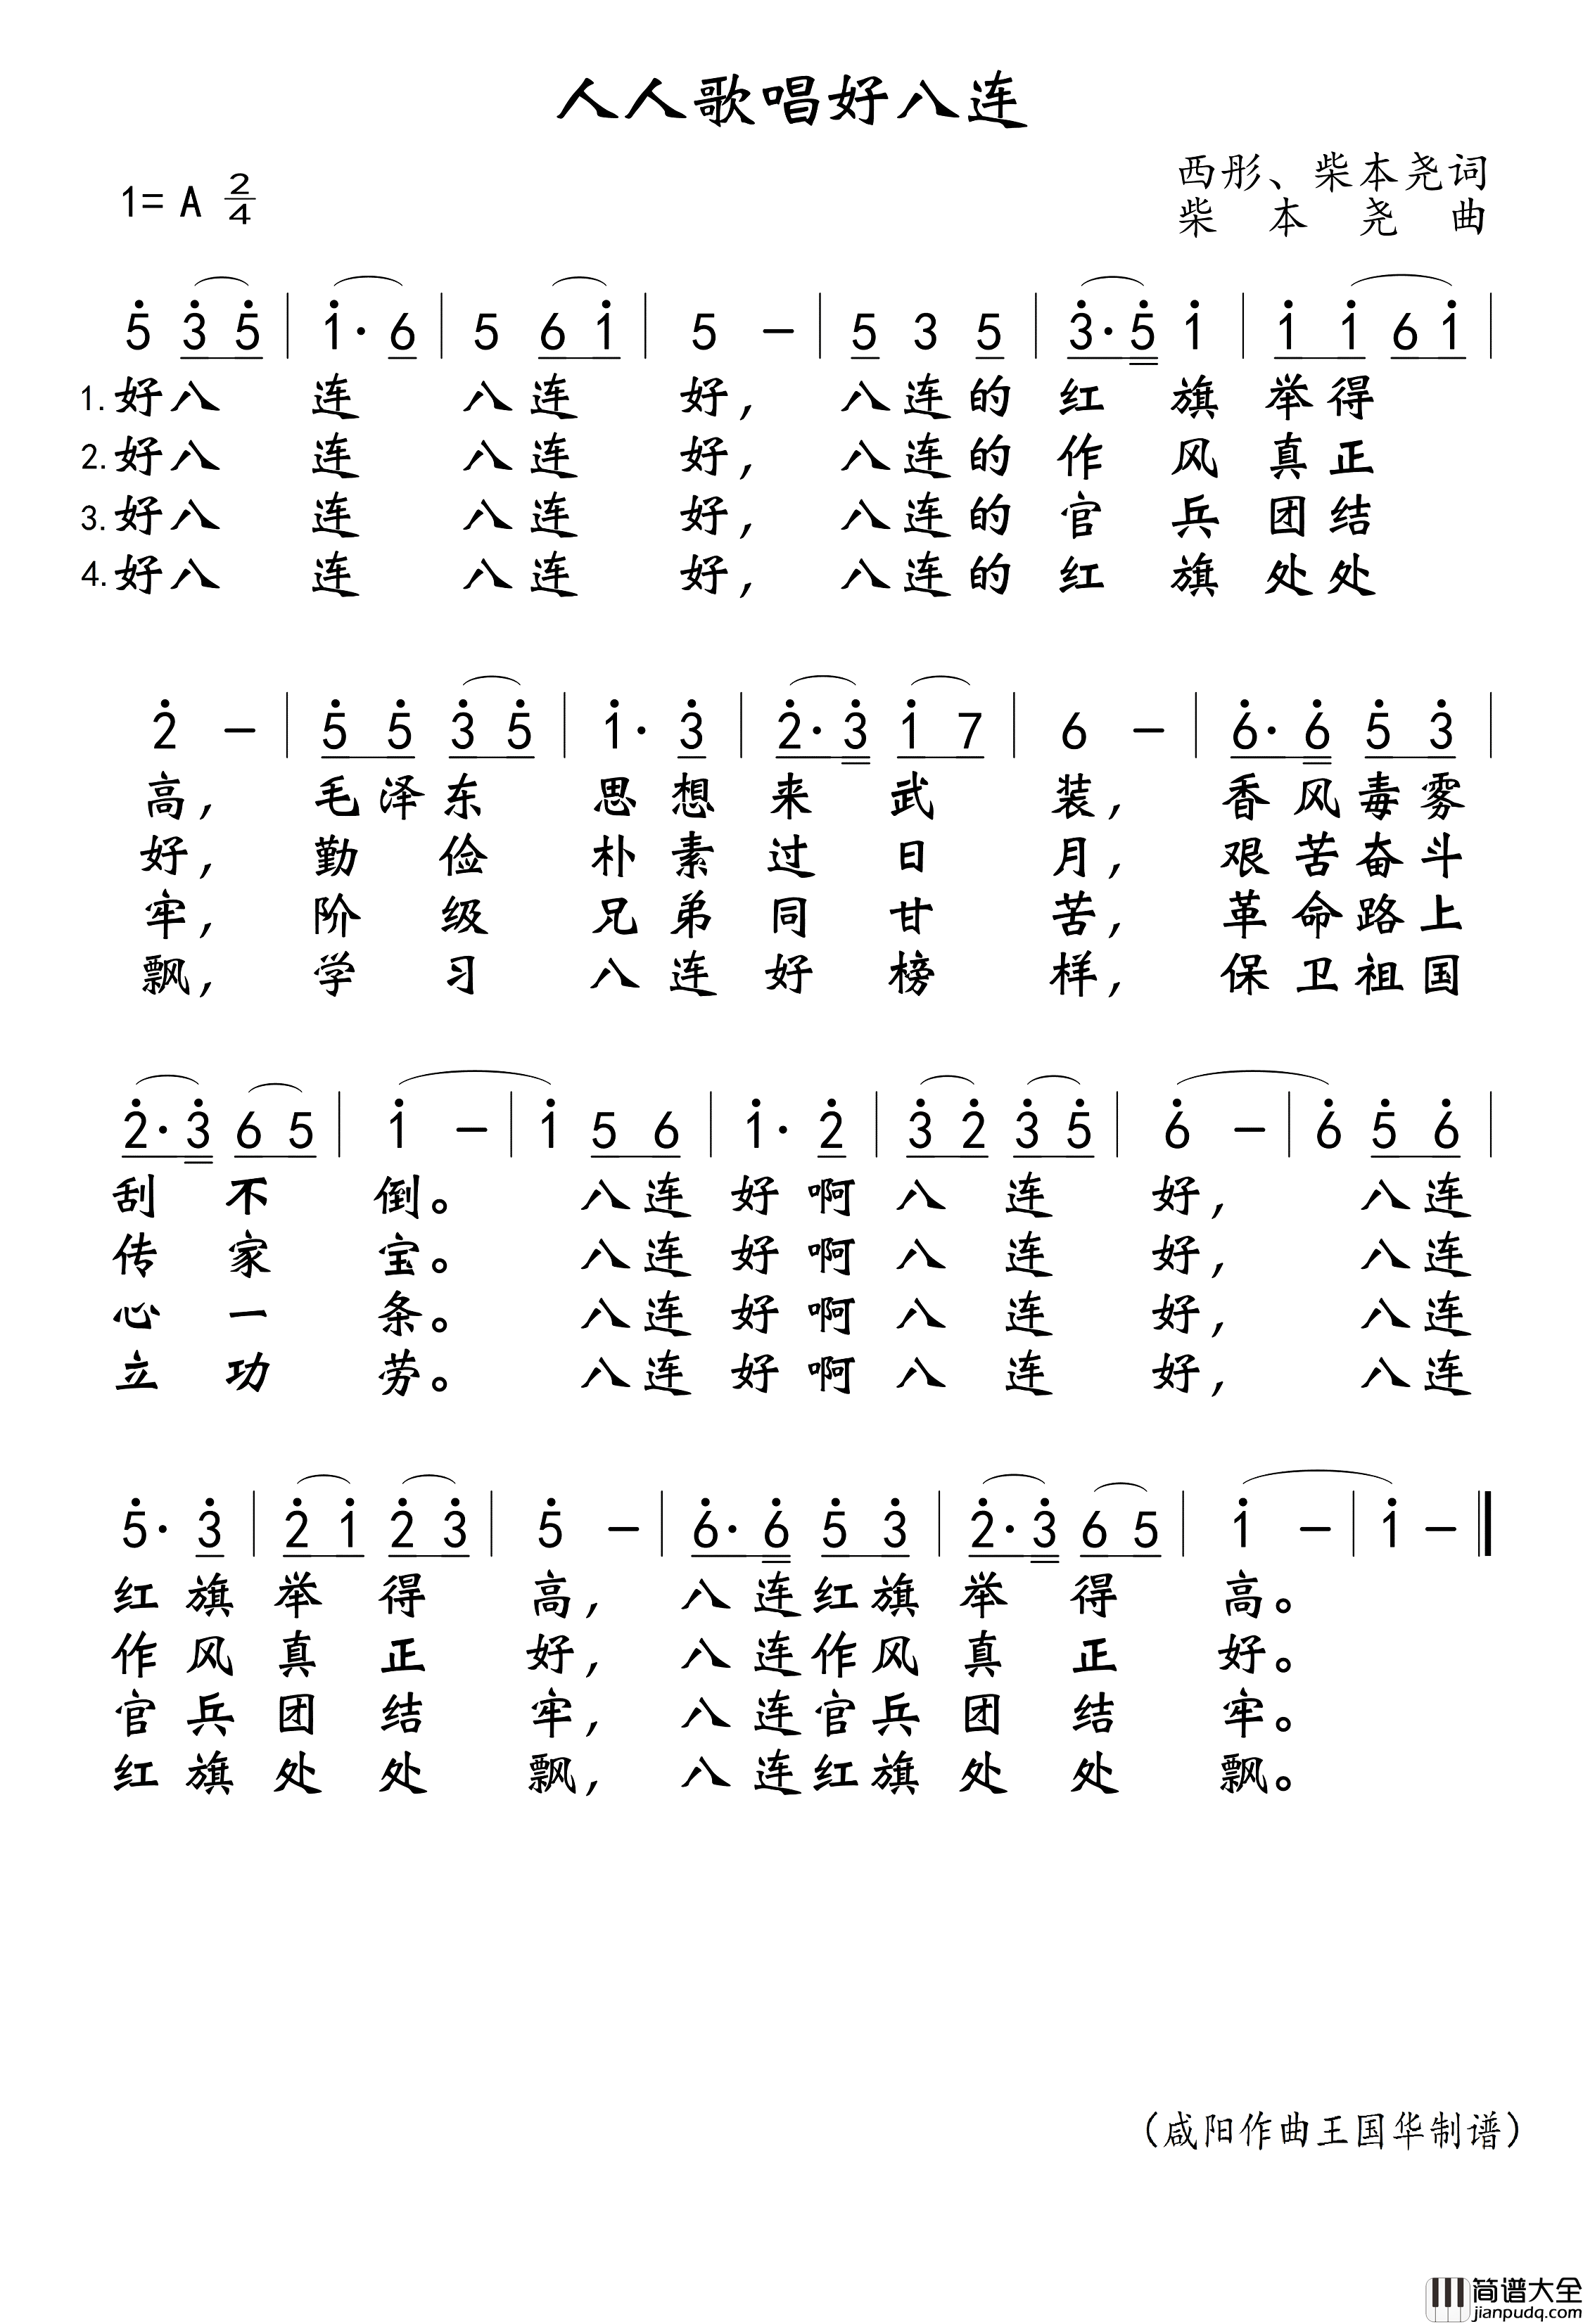 人人歌唱好八连
1= A 2/4
西彤、柴本尧词
柴本尧曲
5 3 5 | 1· 6 | 5 6 1 | 5 — | 5 3 5 | 3· 5 1 | 1 1 6 1 |
1.好八连八连好，八连的红旗举得
2.好八连八连好，八连的作风真正
3.好八连八连好，八连的官兵团结
4.好八连八连好，八连的红旗处处
2 — | 5 5 3 5 | 1· 3 | 2· 3 1 7 | 6 — | 6· 6 5 3 |
高，毛泽东思想来武装，香风毒雾
好，勤俭朴素过日月，艰苦奋斗
牢，阶级兄弟同甘苦，革命路上
飘，学习八连好榜样，保卫祖国
2· 3 6 5 | 1 — | 1 5 6 | 1· 2 | 3 2 3 5 | 6 — | 6 5 6 |
刮不倒。八连好啊八连好，八连
传家宝。八连好啊八连好，八连
心一条。八连好啊八连好，八连
立功劳。八连好啊八连好，八连
5· 3 | 2 1 2 3 | 5 — | 6· 6 5 3 | 2· 3 6 5 | 1 — | 1 — ‖
红旗举得高，八连红旗举得高。
作风真正好，八连作风真正好。
官兵团结牢，八连官兵团结牢。
红旗处处飘，八连红旗处处飘。
（咸阳作曲王国华制谱）
简谱大全
jianpudq.com